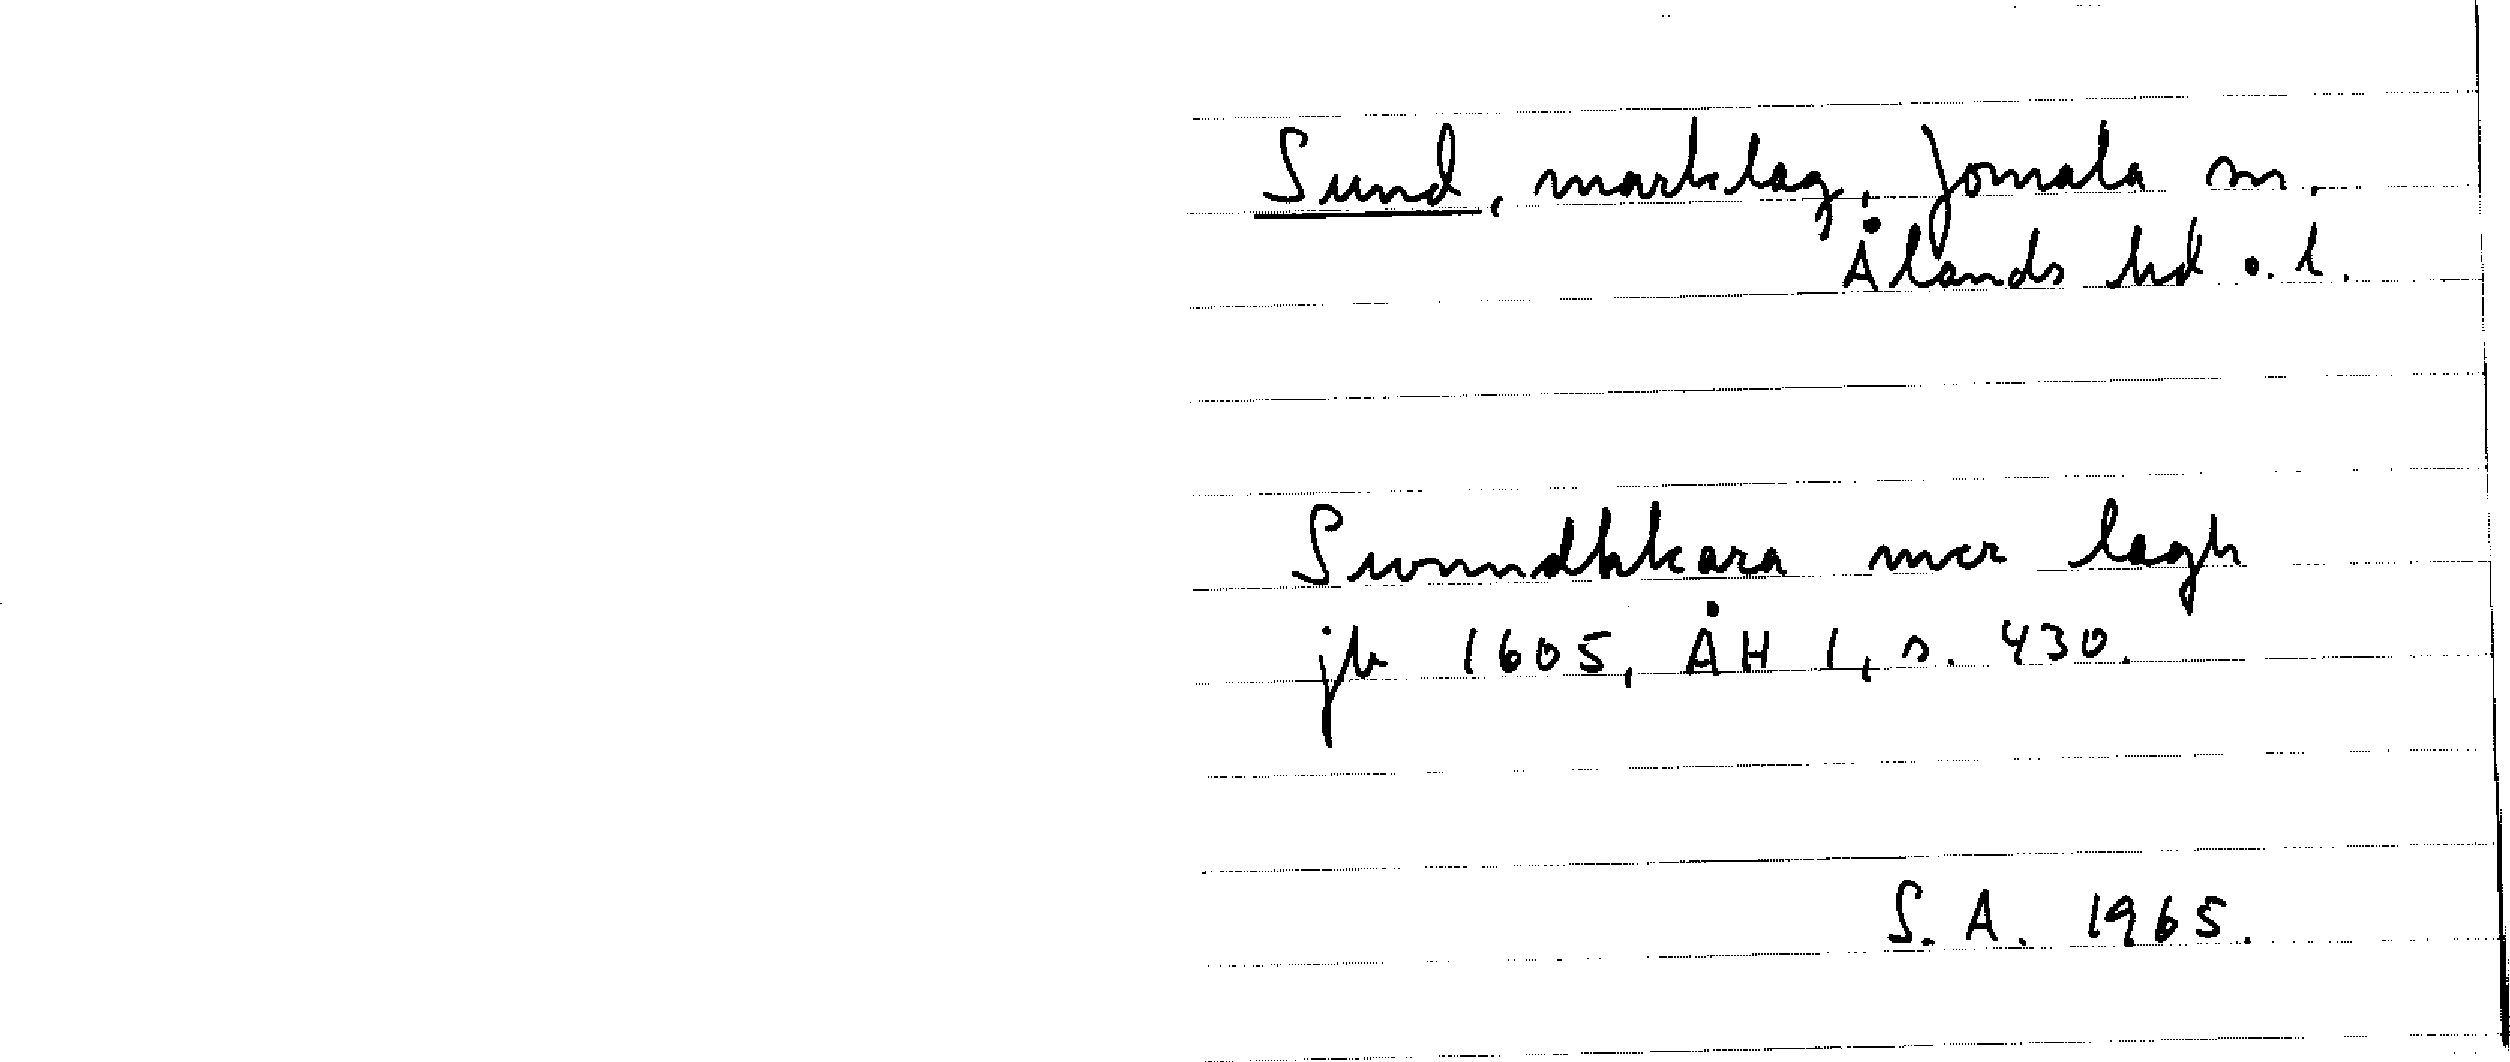 Sund, marklag, Jomala sn.
Ålands hd o. l.
Swnndhkara mer lagh
jb 1605, ÅH 1, s. 430.
S. A. 1965.